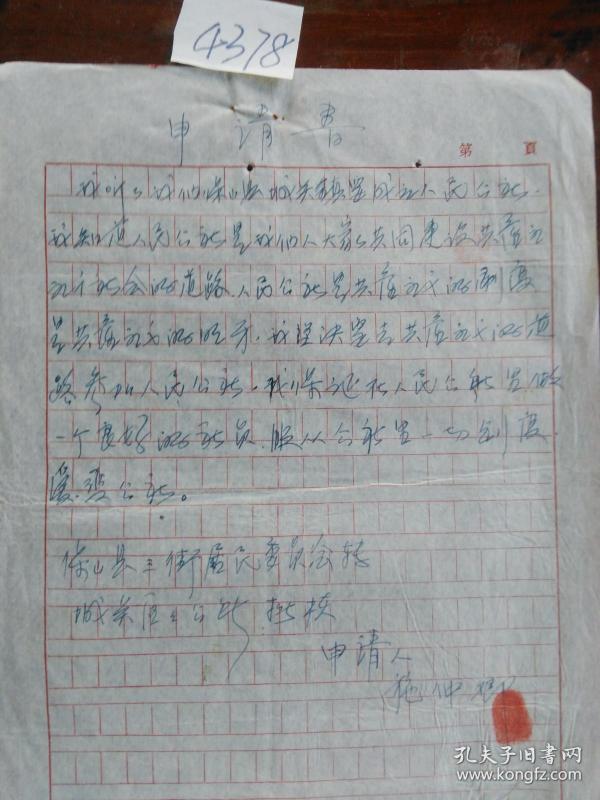 4378
申请书
第 頁
我听了我们保山县城关镇里成立人民公社.
我知道人民公社是我们人大家共同建设共产主
义社会的道路.人民公社是共产主义的制度
是共产主义的萌芽.我坚决要走共产主义的道
路参加人民公社.我保证在人民公社里做
一个良好的社员.服从公社里一切制度.
爱公社。
保山县三街居民委员会转
城关区公社批核
申请人
施仲
孔夫子旧书网
www.kongfz.com